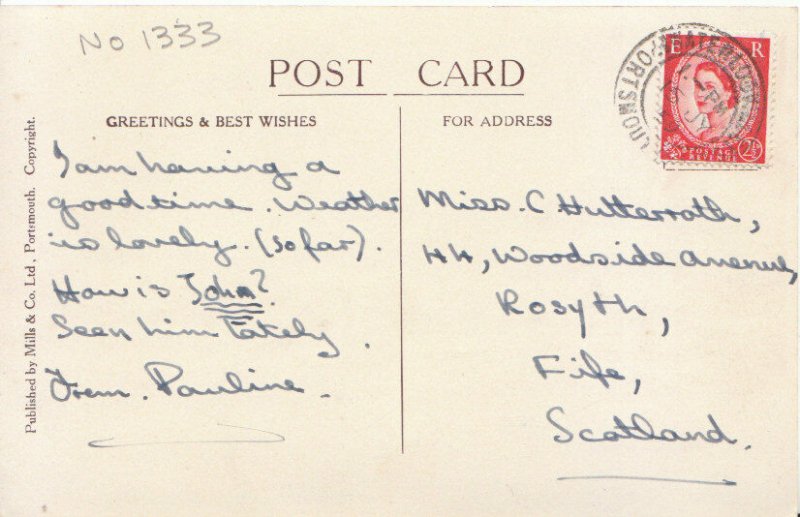 No 1333
POST CARD
GREETINGS & BEST WISHES
I am having a
good time. Weather
is lovely. (so far).
How is John?
Seen him lately.
From. Pauline.
FOR ADDRESS
Miss. C. Hutterroth,
44, Woodside Avenue,
Rosyth,
Fife,
Scotland.
Published by Mills & Co. Ltd., Portsmouth. Copyright.
E R
POSTAGE
REVENUE
2½
PORTSMOU